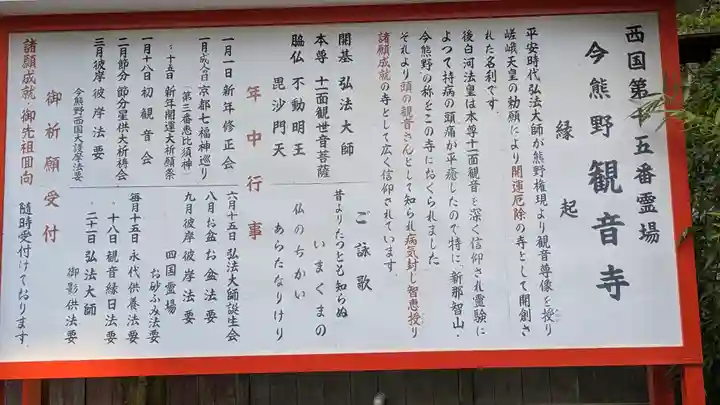 西国第十五番霊場
今熊野観音寺
縁起
平安時代弘法大師が熊野権現より観音尊像を授り
嵯峨天皇の勅願により開運厄除の寺として開創さ
れた名刹です。
後白河法皇は本尊十一面観音を深く信仰され霊験に
よつて持病の頭痛が平癒したので特に「新那智山・
今熊野」の称をこの寺におくられました
それより頭の観音さんとして知られ病気封じ智恵授り
諸願成就の寺として広く信仰されています。
開基 弘法大師
本尊 十一面観世音菩薩
脇仏 不動明王
毘沙門天
ご詠歌
昔よりたつとも知らぬ
いまくまの
仏のちかい
あらたなりけり
年中行事
一月一日 新年修正会
一月成人の日 京都七福神巡り
(第三番恵比須神)
〃十五日 新年開運大祈願祭
一月十八日 初観音会
二月節分 節分星供大祈祷会
三月彼岸 彼岸法要
今熊野西国大護摩法要
六月十五日 弘法大師誕生会
八月お盆 お盆法要
九月彼岸 彼岸法要
四国霊場
お砂ふみ法要
毎月十五日 永代供養法要
〃十八日 観音縁日法要
〃二十一日 弘法大師
御影供法要
御祈願受付
諸願成就・御先祖回向 随時受付けております。